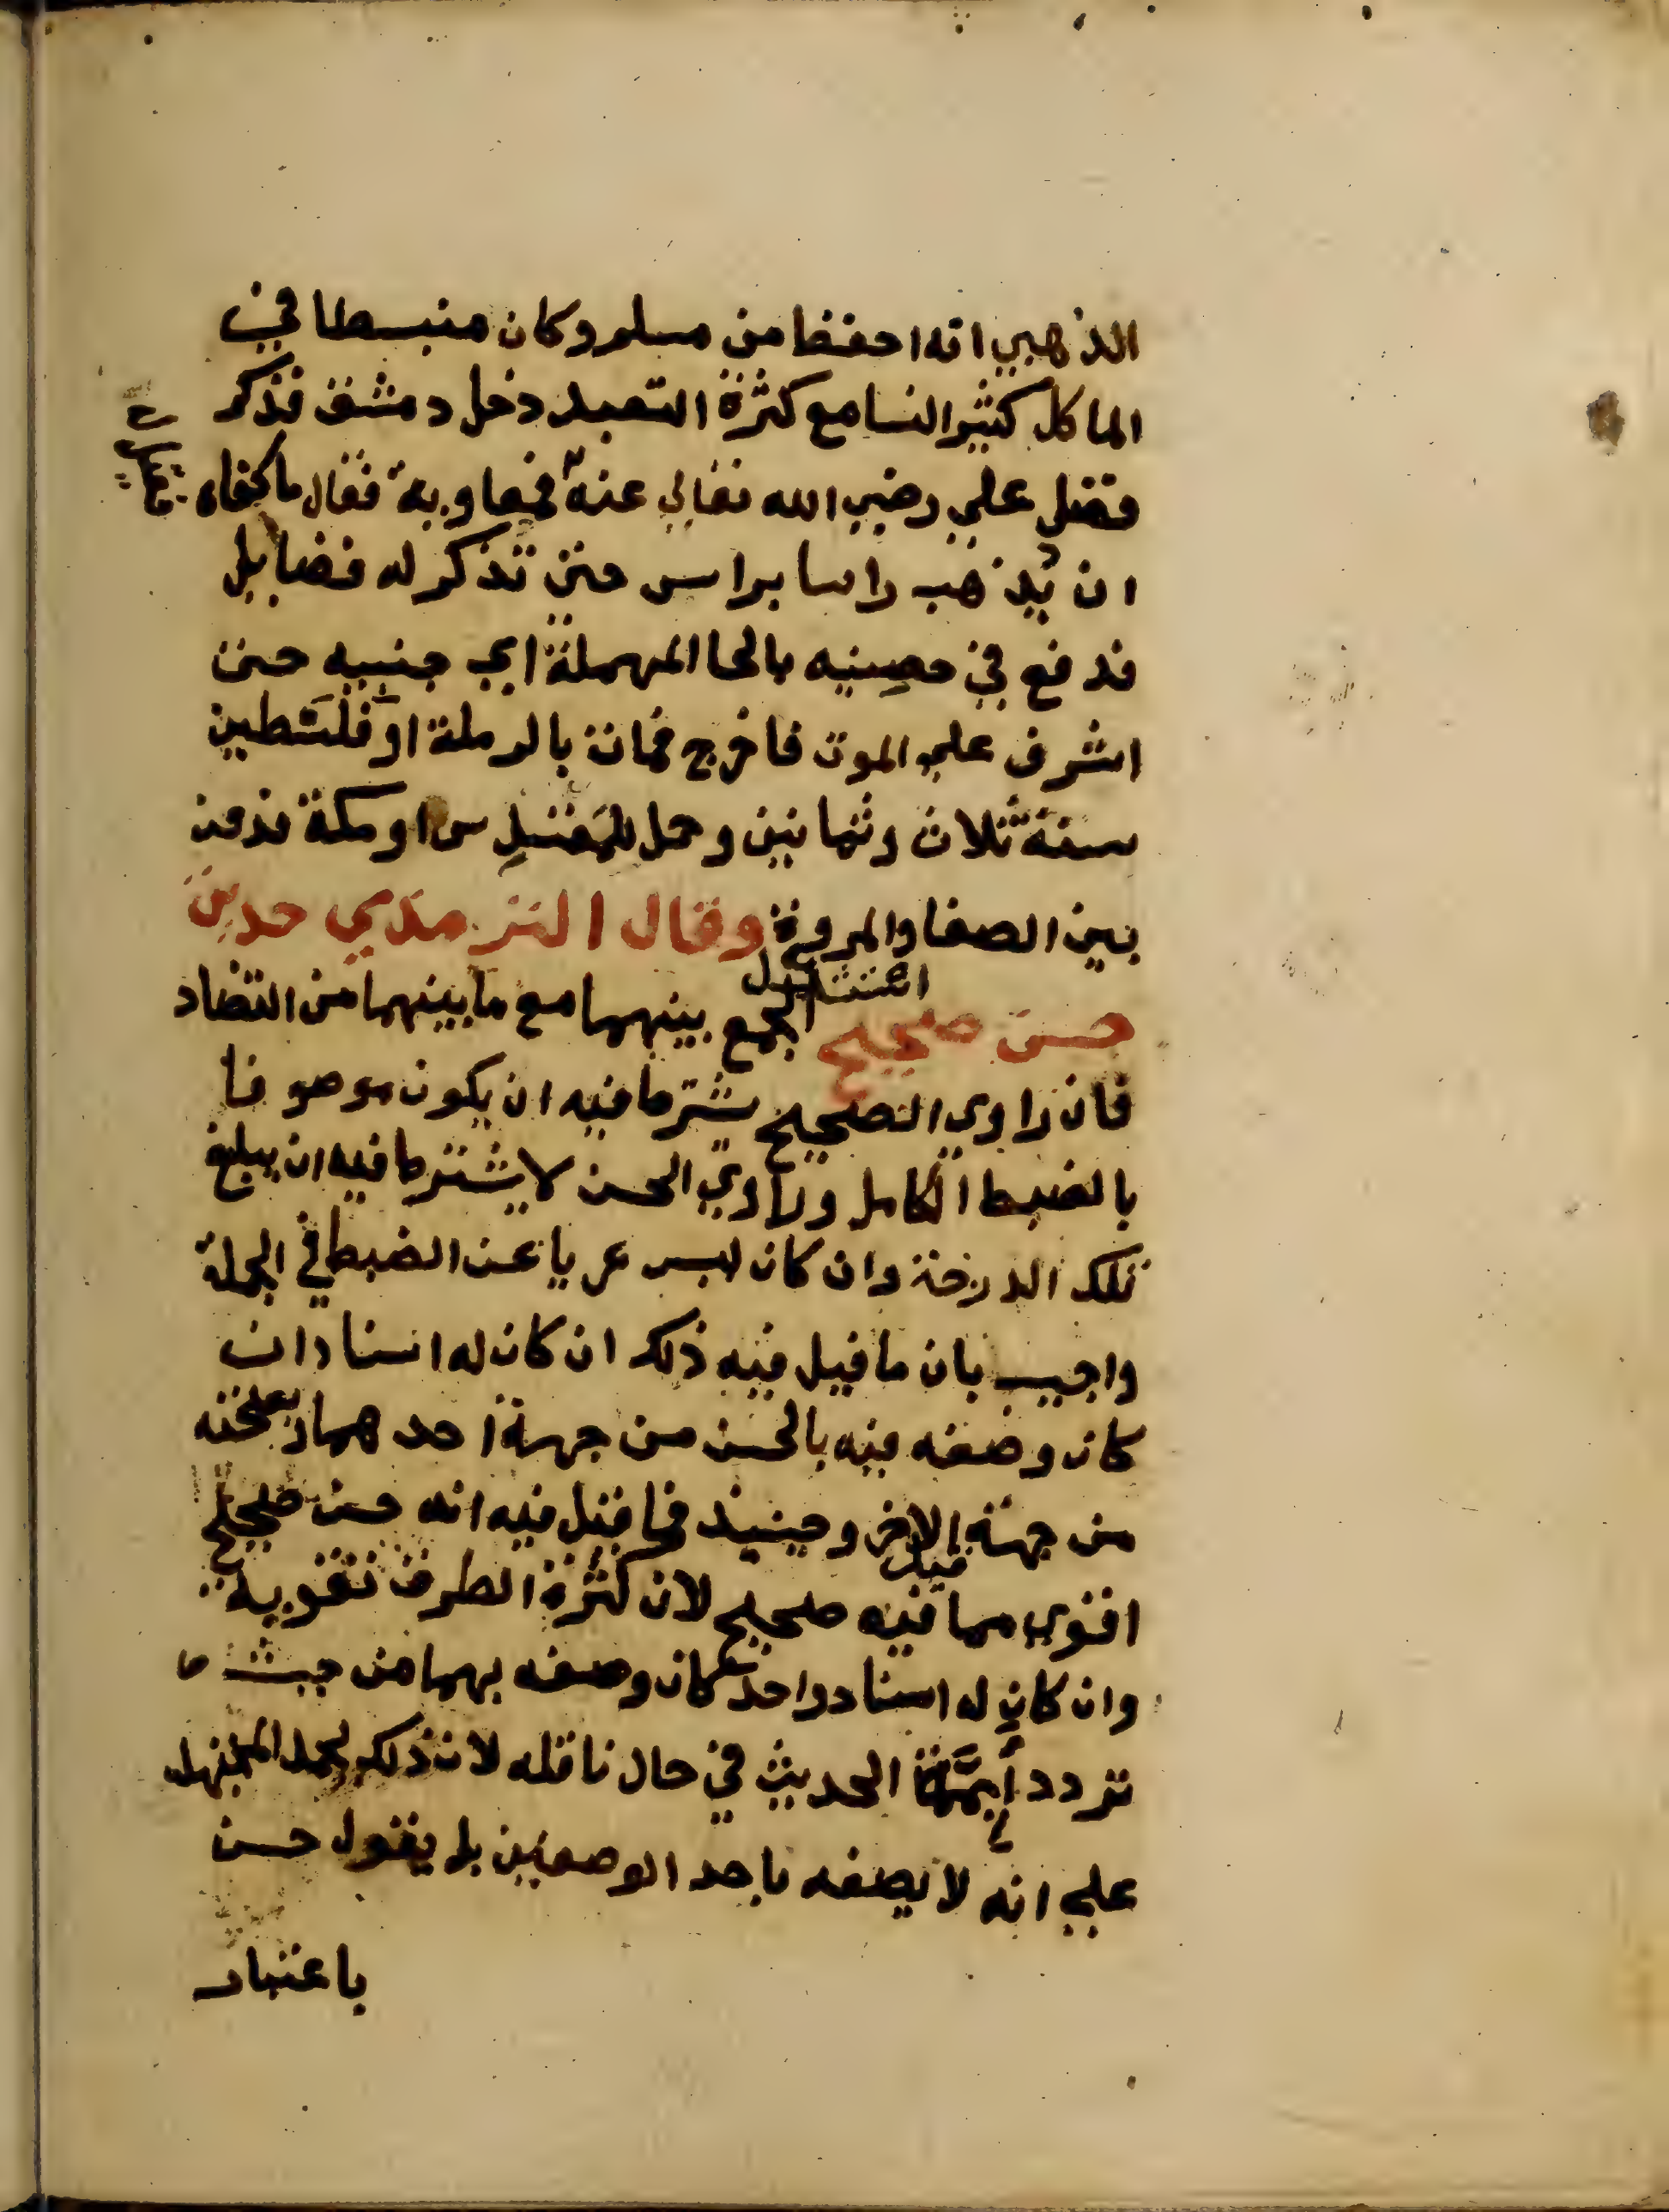 الذهبي انه احفظ من مسلم وكان منبسطا في
الماكل كثير النسا مع كثرة التعبد دخل دمشق فذكر
فضل علي رضي الله تعالى عنه فمعاوية فقال ما كفاه
ان يذهب راسا براس حتى تذكر له فضايل
فدفع في حصنيه بالحا المهملة اي جنبيه حتى
اشرف على الموت فاخرج فمات بالرملة او فلسطين
سنة ثلاث وثمانين وحمل للمقدس او مكة فدفن
بين الصفا والمروة وقال الترمذي حديث
حسن صحيح استشكل الجمع بينهما مع ما بينهما من التضاد
فان راوي الصحيح يشترط فيه ان يكون موصوفا
بالضبط الكامل وراوي الحسن لا يشترط فيه ان يبلغ
تلك الدرجة وان كان ليس عريا عن الضبط في الجملة
واجيب بان ما قيل فيه ذلك ان كان له اسنادان
كان وصفه فيه بالحسن من جهة احدهما وبصحته
من جهة الاخر وحينيذ فما قيل فيه انه حسن صحيح
اقوى مما قيل فيه صحيح لان كثرة الطرق تقويه
وان كان له اسناد واحد كان وصفه بهما من حيث
تردد أيمَّة الحديث في حال ناقله لان ذلك يحمل المجتهد
على انه لا يصفه باحد الوصفين بل يقول حسن
باعتبار